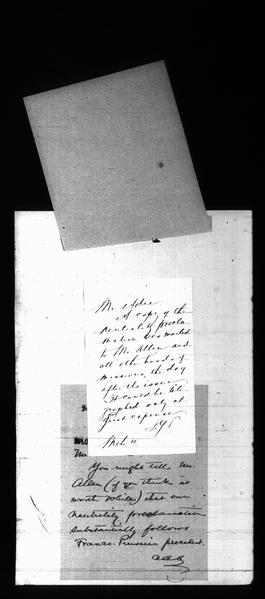 Mr. Adee
A copy of the
neutrality procla-
mation was mailed
to Mr. Allen and
all other heads of
missions, the day
after its issue.
It could be tele-
graphed only at
great expense
Mch 4
You might tell Mr.
Allen (if you think it
worth while) that our
neutrality proclamation
substantially follows
Franco-Prussian precedent.
A.A.A.